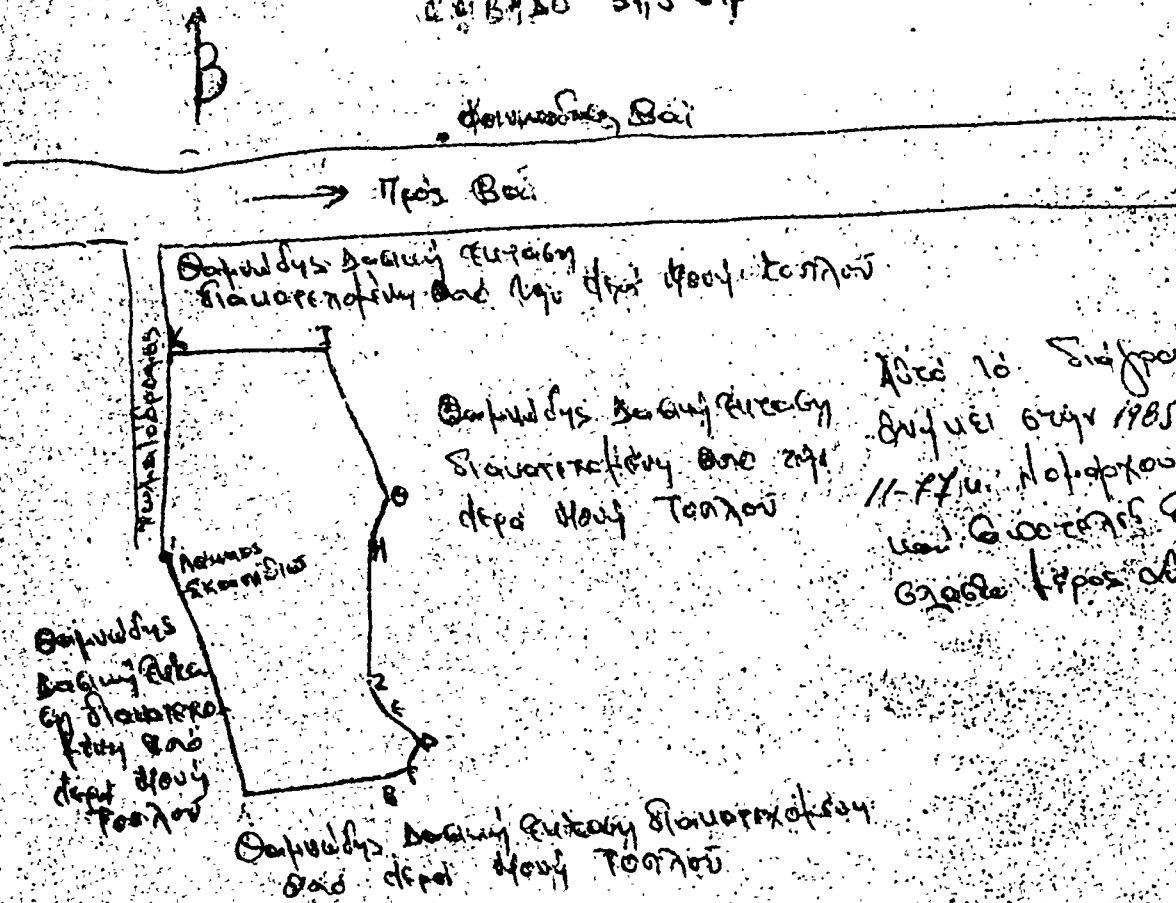 Β
Φοινικόδασος Βάι
Πρός Βάι
Θαμνώδης Δασική έκταση
διακατεχομένη από την Ιερά Μονή Τοπλού
Κ
Ι
Χωματόδρομος
Θαμνώδης Δασική έκταση
διακατεχομένη από την
Ιερά Μονή Τοπλού
Αὐτό τό διάγρα
ἀνήκει στήν 1985
11-77 Νομάρχου
καί ἀποτελεῖ
μέρος
Θ
Η
Λάκκος
Θαμνώδης
Δασική έκτα
ση διακατεχο-
μένη από
Ιερά Μονή
Τοπλού
Ζ
Ε
Δ
Γ
Β
Θαμνώδης Δασική έκταση διακατεχομένη
από Ιερά Μονή Τοπλού